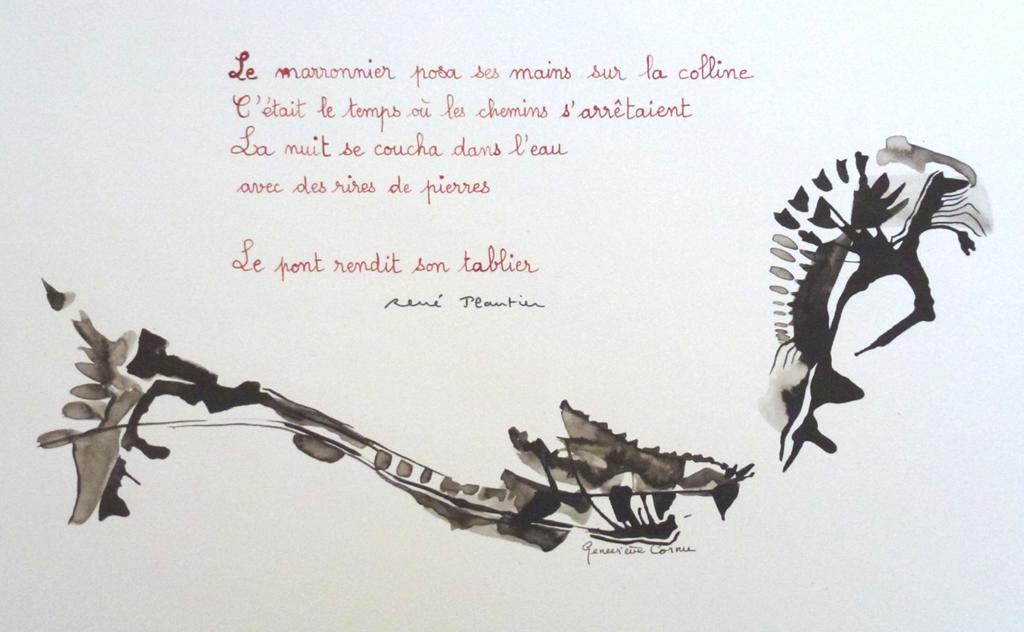 Le marronnier posa ses mains sur la colline
C'était le temps où les chemins s'arrêtaient
La nuit se coucha dans l'eau
avec des rires de pierres
Le pont rendit son tablier
René Plantier
Geneviève Cornu